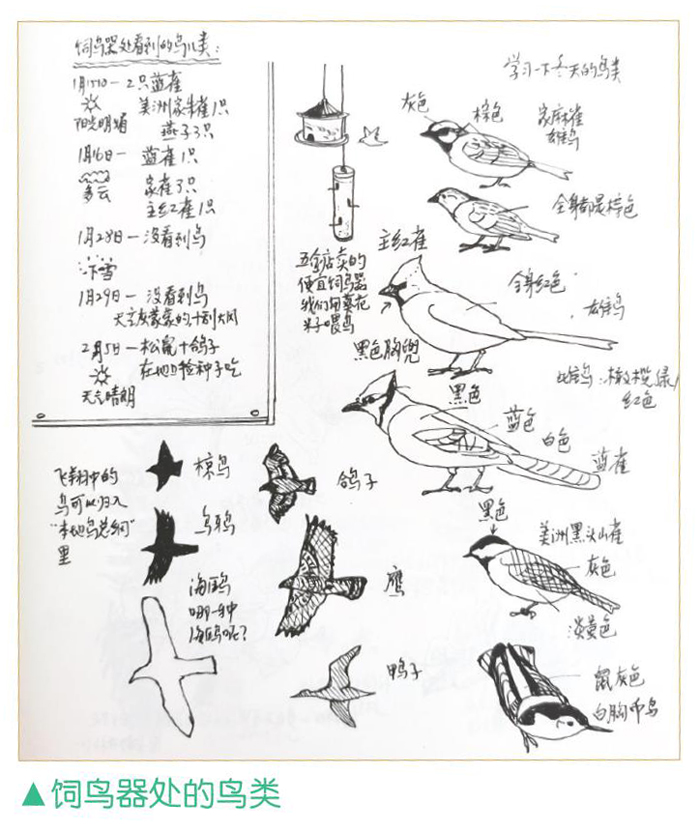 饲鸟器处看到的鸟儿类：
1月15日－2只蓝雀
美洲家朱雀1只
阳光明媚
燕子3只
1月16日－ 蓝雀1只
多云
家雀3只
主红雀1只
1月28日－没看到鸟
下雪
1月29日－ 没看到鸟
天空灰蒙蒙的，十到大风
2月5日－松鼠＋鸽子
在地上捡种子吃
天气晴朗
五金店卖的
便宜饲鸟器
我们用葵花
米子喂鸟
学习一下冬天的鸟类
灰色
棕色
家麻雀
雄鸟
全身都是棕色
主红雀
全身红色
雄鸟
黑色胸兜
雌鸟：橄榄绿/
红色
黑色
蓝色
白色
蓝雀
黑色
美洲黑头山雀
灰色
淡黄色
鼠灰色
白胸䴓鸟
飞翔中的
鸟可以归入
“本地鸟总纲”
里
椋鸟
鸽子
乌鸦
鹰
海鸥
哪一种
海鸥呢？
鸭子
▲饲鸟器处的鸟类